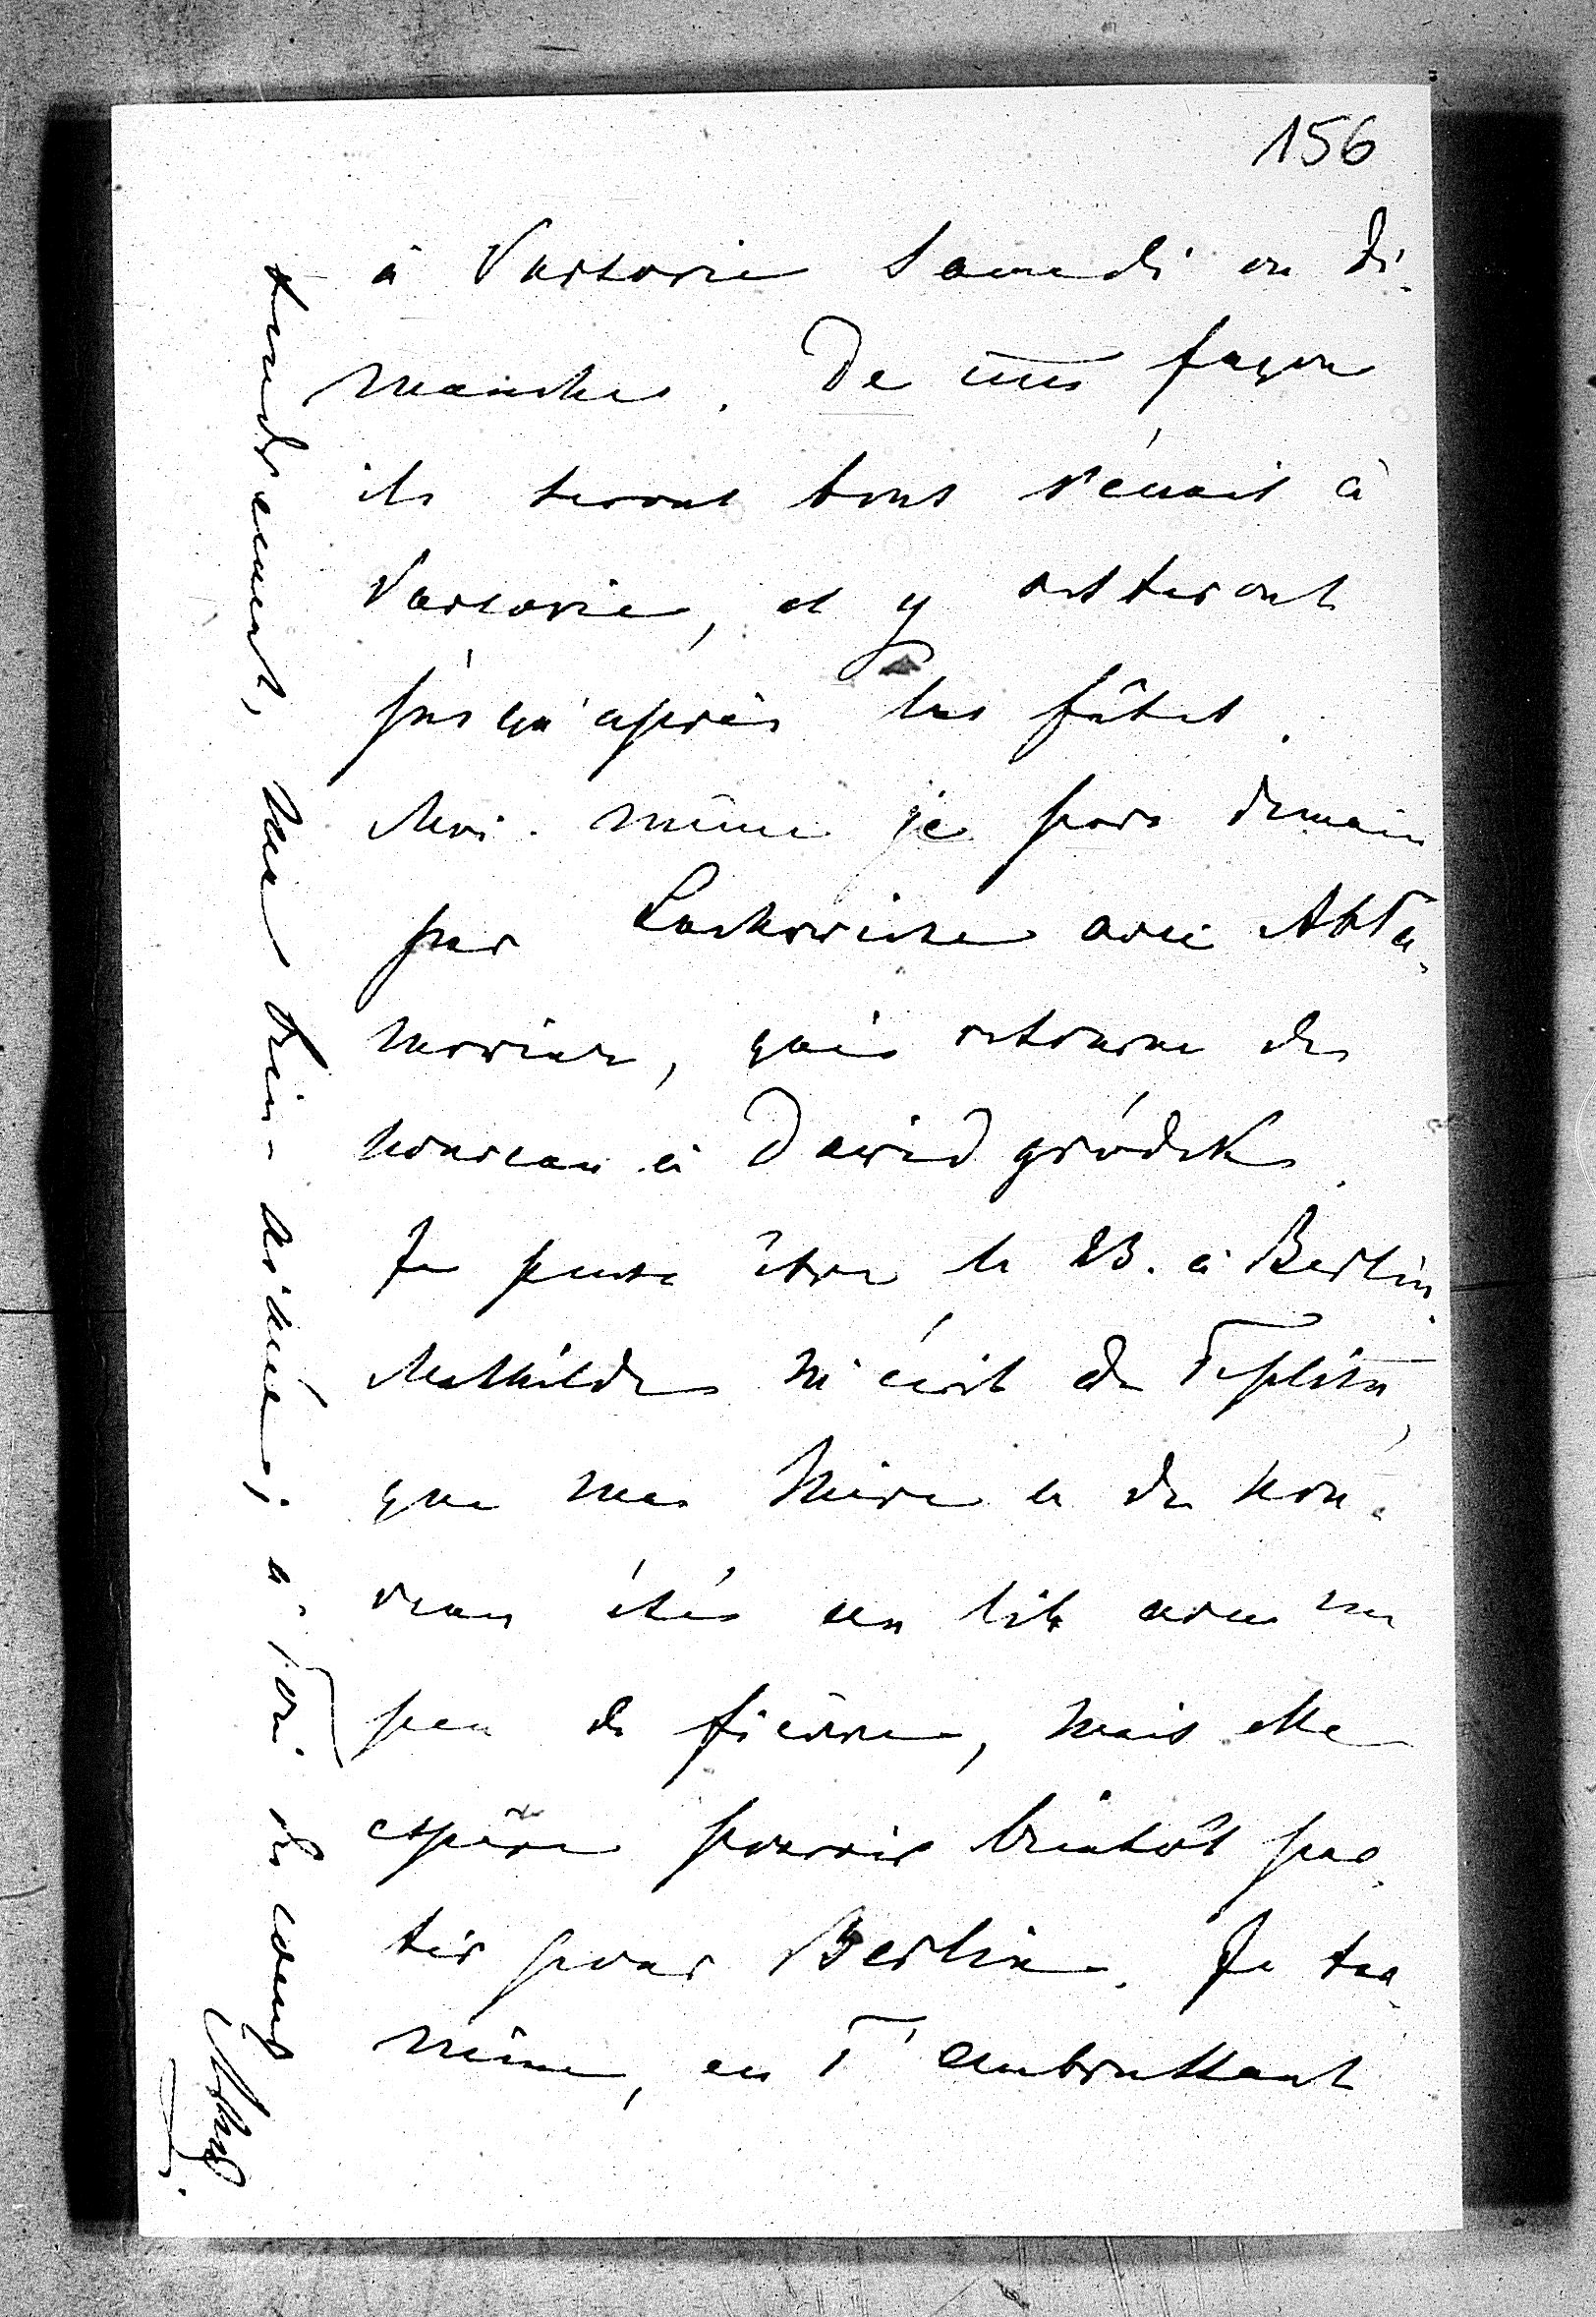 156
à Varsovie Samedi ou Di-
manche. De cette façon
ils seront tous réunis à
Varsovie, et y resteront
jusqu'après les fêtes.
Moi-même je pars demain
par Lachowicze avec Abra-
mowicz, qui retourne de
nouveau à Dawidgródek.
Je pense être le 23. à Berlin.
Mathilde m'écrit de Teplitz,
que ma Mère a de nou-
veau été au lit avec un
peu de fièvre, mais elle
espère pouvoir bientôt par-
tir pour Berlin. Je ter-
mine, en T'embrassant
tendrement, ma bien-aimée; à Toi de cœur